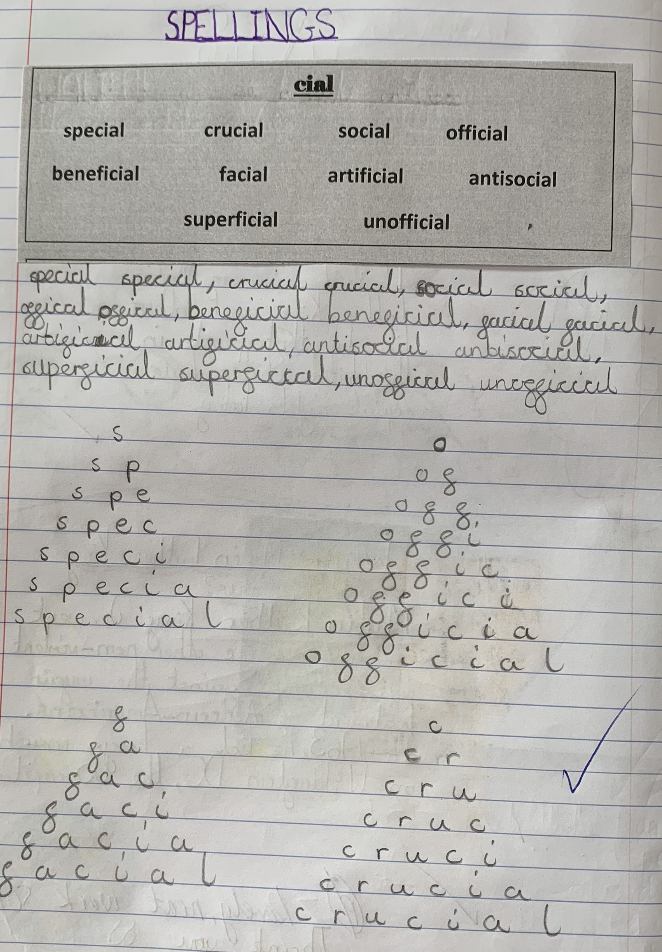 SPELLINGS
cial
special crucial social official
beneficial facial artificial antisocial
superficial unofficial
special special, crucial crucial, social social,
offical offical, beneficial beneficial, facial facial,
artificial artificial, antisocial antisocial,
superficial superficial, unoffical unofficial
s
s p
s p e
s p e c
s p e c i
s p e c i a
s p e c i a l
o
o f
o f f
o f f i
o f f i c
o f f i c i
o f f i c i a
o f f i c i a l
f
f a
f a c
f a c i
f a c i a
f a c i a l
c
c r
c r u
c r u c
c r u c i
c r u c i a
c r u c i a l